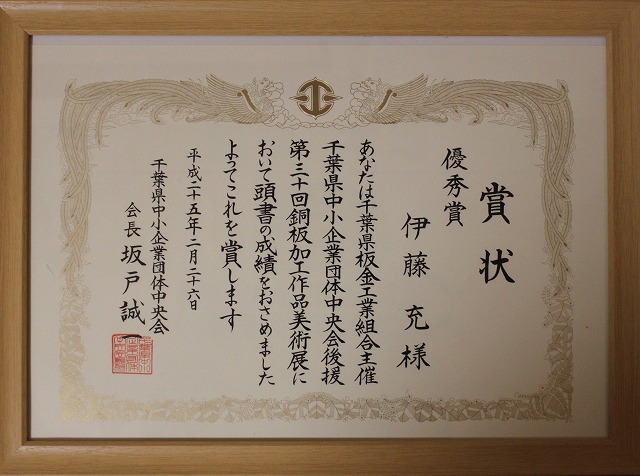 賞状
優秀賞
伊藤充様
あなたは千葉県板金工業組合主催
千葉県中小企業団体中央会後援
第三十回銅板加工作品美術展に
おいて頭書の成績をおさめました
よってこれを賞します
平成二十五年二月二十六日
千葉県中小企業団体中央会
会長 坂戸誠一